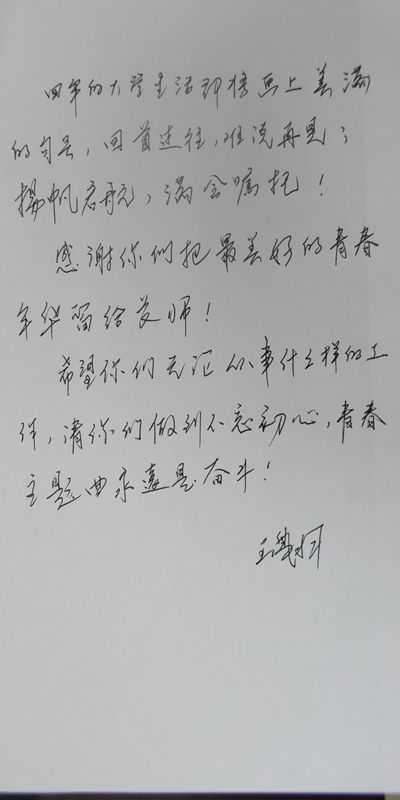 四年的大学生活即将画上美满
的句号，回首过往，难说再见；
扬帆启航，满含嘱托！
感谢你们把最美好的青春
年华留给安师！
希望你们无论从事什么样的工
作，请你们做到不忘初心，青春
主题曲永远是奋斗！